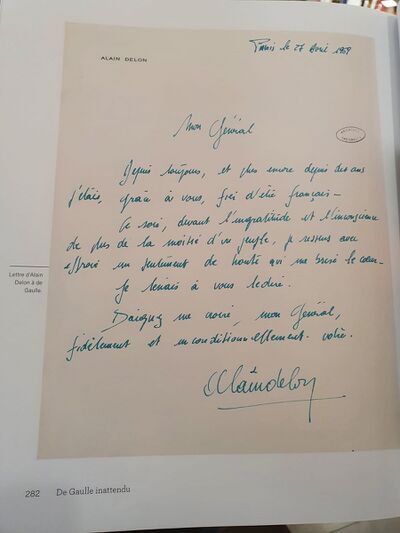 ALAIN DELON
Paris le 27 Avril 1969
Mon Général
Depuis toujours, et plus encore depuis dix ans
j'étais, grâce à vous, fier d'être français –
Ce soir, devant l'ingratitude et l'inconscience
de plus de la moitié d'un peuple, je ressens avec
effroi un sentiment de honte qui me brise le coeur –
Je tenais à vous le dire.
Daignez me croire, mon Général,
fidèlement et inconditionnellement vôtre.
Alain Delon
Lettre d'Alain
Delon à de
Gaulle.
282 De Gaulle inattendu